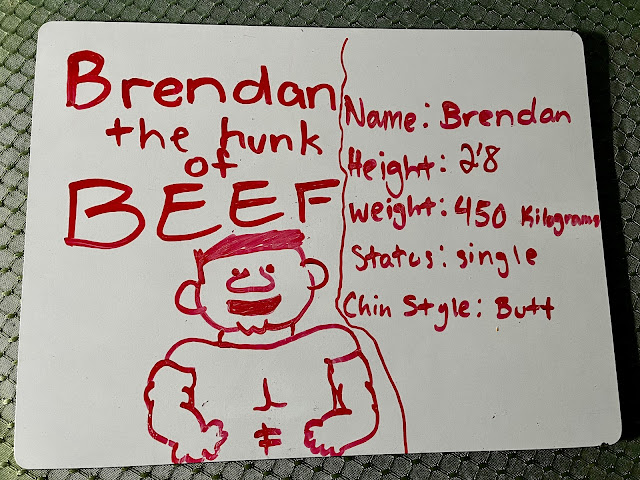 Brendan
the hunk
of
BEEF
Name: Brendan
Height: 2'8
weight: 450 Kilograms
Status: single
Chin Style: Butt